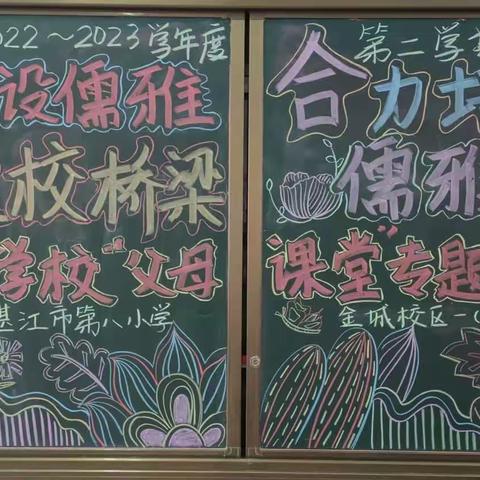 022～2023学年度
设儒雅
校桥梁
学校“父母
湛江市第八小学
第二学
合力
儒雅
课堂”专题
金城校区一(